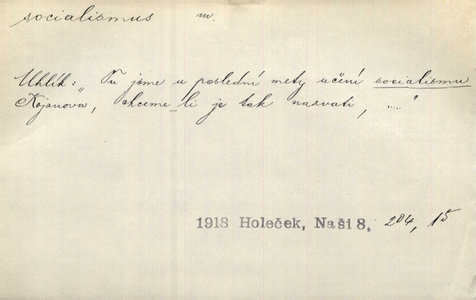 socialismus m.
Uhlík: „Tu jsme u poslední mety učení socialismu
Kojanova, chceme-li je tak nazvati, ..."
1918 Holeček, Naši 8, 204, 15